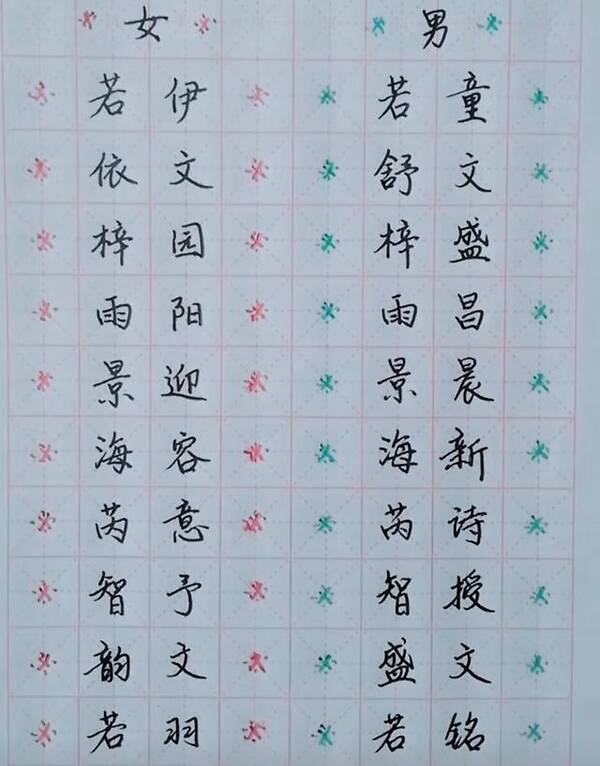 女 男
若伊 若童
依文 舒文
梓园 梓盛
雨阳 雨昌
景迎 景晨
海容 海新
芮意 芮诗
智予 智授
韵文 盛文
若羽 若铭